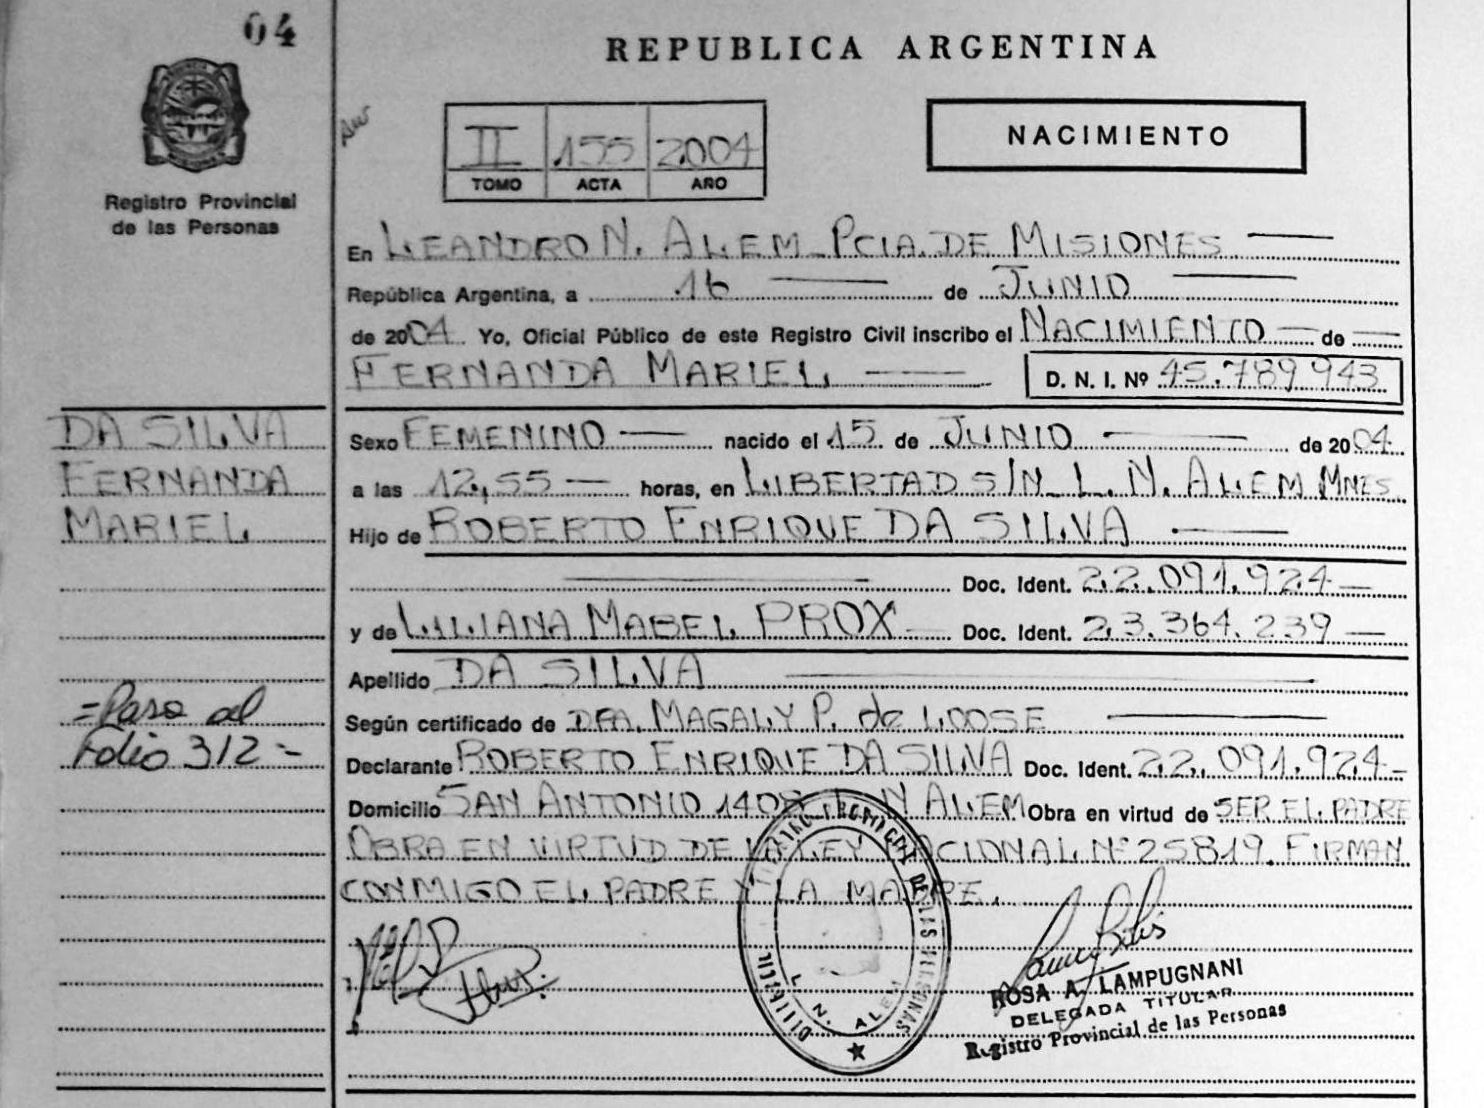 04
REPUBLICA ARGENTINA
Registro Provincial
de las Personas
II 155 2004
TOMO ACTA AÑO
NACIMIENTO
En LEANDRO N. ALEM_PCIA. DE MISIONES
República Argentina, a 16 de JUNIO
de 2004 Yo, Oficial Público de este Registro Civil inscribo el NACIMIENTO de
FERNANDA MARIEL D. N. I. Nº 45.789.943
DA SILVA
FERNANDA
MARIEL
Sexo FEMENINO nacido el 15 de JUNIO de 2004
a las 12,55 horas, en LIBERTAD S/N_ L. N. ALEM MNES
Hijo de ROBERTO ENRIQUE DA SILVA
Doc. Ident. 22.091.924
y de LILIANA MABEL PROX Doc. Ident. 23.364.239
Apellido DA SILVA
=Paso al
Folio 312=
Según certificado de DRA. MAGALY P. de LOOSE
Declarante ROBERTO ENRIQUE DA SILVA Doc. Ident. 22.091.924
Domicilio SAN ANTONIO 1408 L. N ALEM Obra en virtud de SER EL PADRE
OBRA EN VIRTUD DE LA LEY NACIONAL Nº 25819. FIRMAN
CONMIGO EL PADRE Y LA MADRE.
L. N. ALEM
ROSA A. LAMPUGNANI
DELEGADA TITULAR
Registro Provincial de las Personas